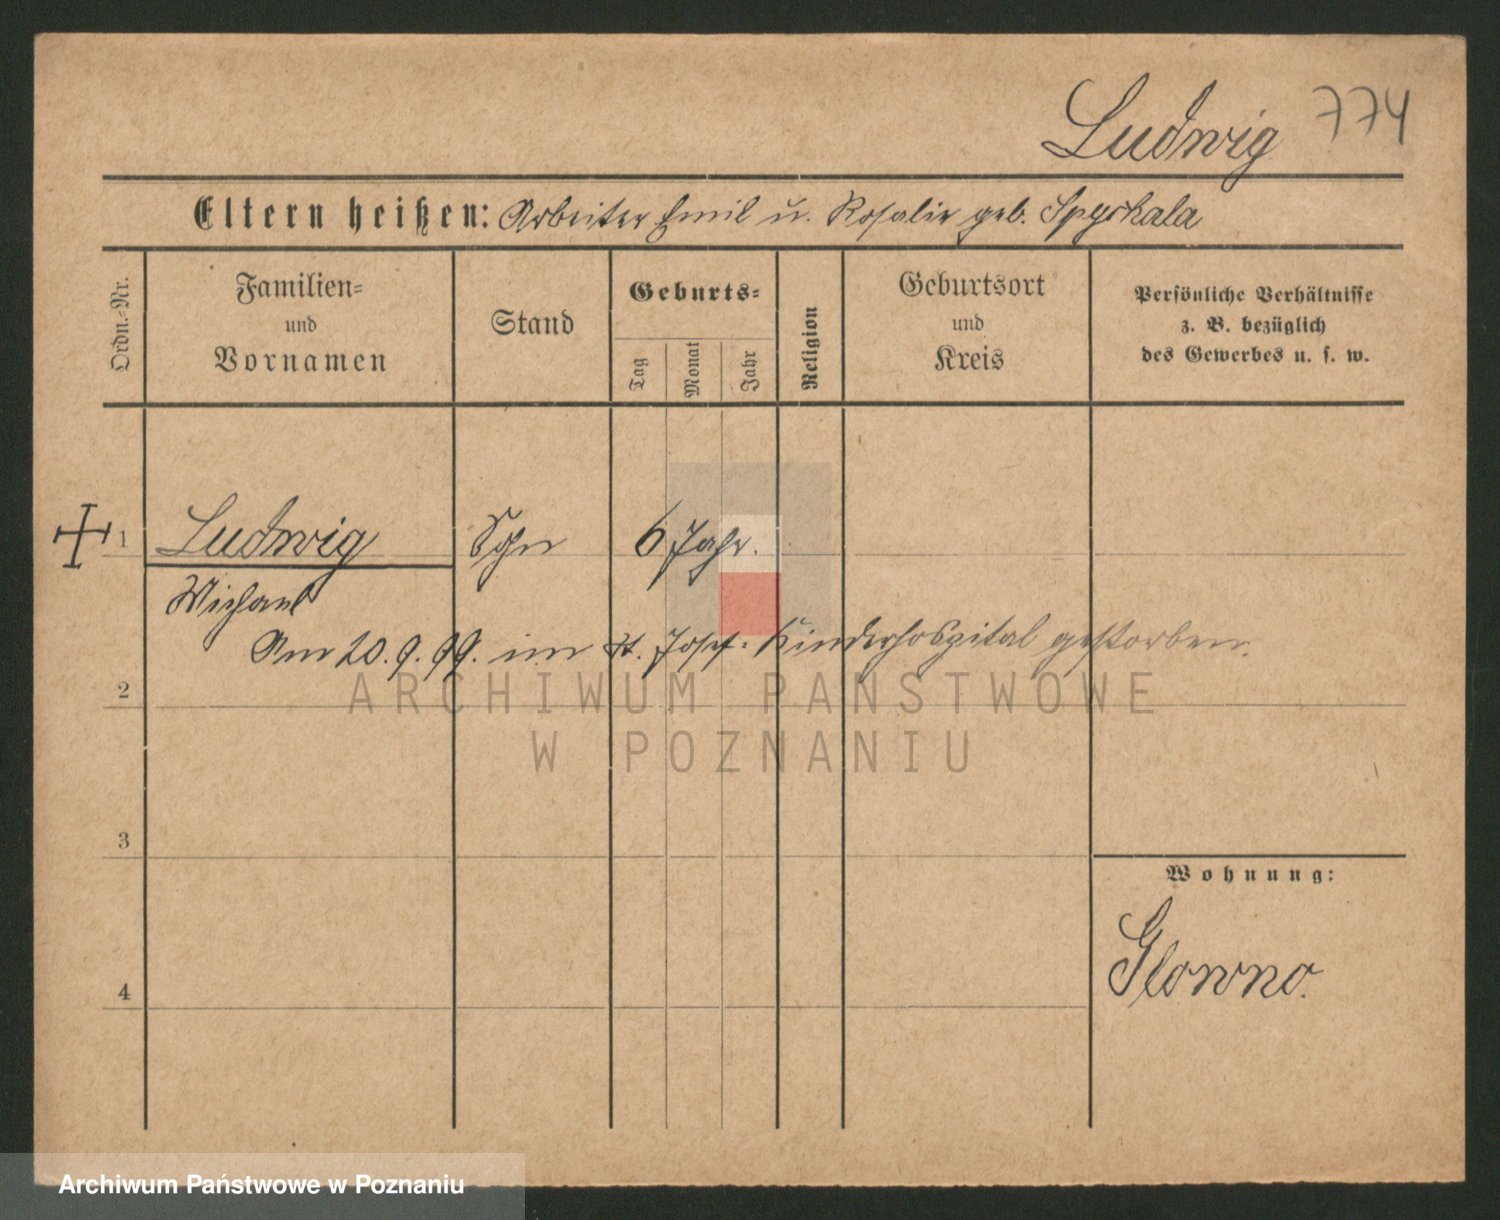 Ludwig 774
Eltern heißen: Arbeiter Emil u. Rosalie geb. Spychala
Ordn.-Nr.
Familien-
und
Vornamen
Stand
Geburts-
Tag
Monat
Jahr
Religion
Geburtsort
und
Kreis
Persönliche Verhältnisse
z. B. bezüglich
des Gewerbes u. s. w.
1 Ludwig Sohn 6 Jahr.
Michael
Am 20.9.99. im St. Josef-Kinderhospital gestorben.
2
ARCHIWUM PAŃSTWOWE
W POZNANIU
3
Wohnung:
Glowno.
4
Archiwum Państwowe w Poznaniu